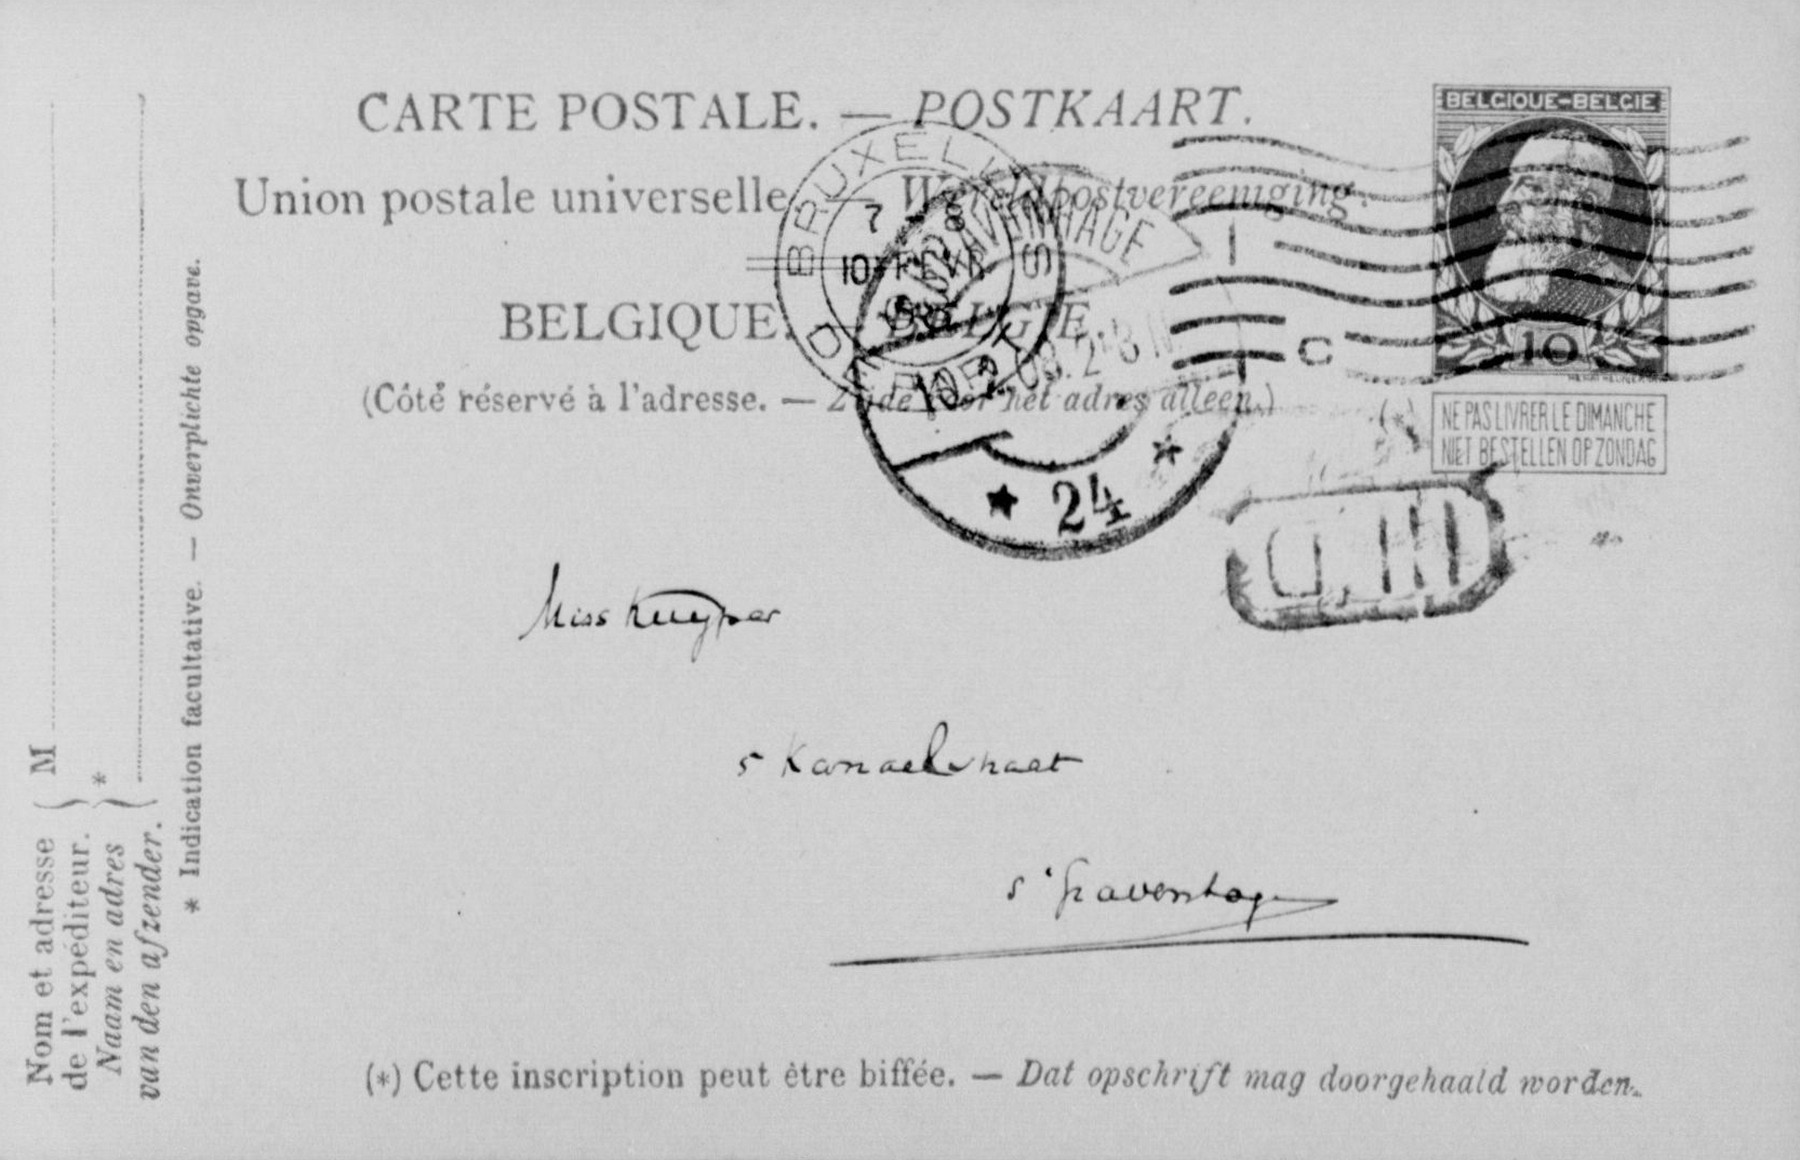 CARTE POSTALE. — POSTKAART.
Union postale universelle. — Wereldpostvereeniging.
BELGIQUE. — BELGIË.
(Côté réservé à l'adresse. — Zijde voor het adres alleen.)
BELGIQUE-BELGIE
10
NE PAS LIVRER LE DIMANCHE
NIET BESTELLEN OP ZONDAG
BRUXELLES
7 - 8
10 FEVR
DEPART
'S GRAVENHAGE
10.2.09.2-3 N
24
C
Miss Kuyper
5 Kanaalstraat
s'Gravenhage
(*) Cette inscription peut être biffée. — Dat opschrift mag doorgehaald worden.
Nom et adresse
de l'expéditeur.
Naam en adres
van den afzender.
M
*
* Indication facultative. — Onverplichte opgave.